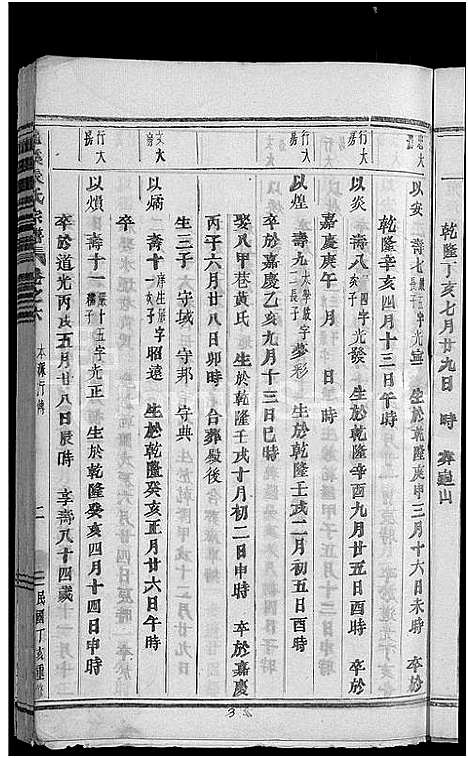 乾隆丁亥七月廿九日 時 葬
以安 壽七 字光 生於乾隆庚申三月十六日未時 卒於
乾隆辛亥四月十三日午時
行大 以炎 壽八 四字光發 生於乾隆辛酉四月初五日酉時 卒於
嘉慶庚午 月 日 時
行大 以煌 壽九 太學 字夢彩 生於乾隆壬戌二月初五日酉時
卒於嘉慶乙亥九月十三日巳時
娶八甲巷黃氏 生於乾隆壬戌十月初二日申時 卒於嘉慶
丙子六月廿八日卯時 合葬 後
生三子 守城 守邦 守典
文大 以燏 壽十一 庠生 字昭遠 生於乾隆癸亥正月廿六日午時
卒
行大 以熉 壽十一 十五 字光正 生於乾隆癸亥四月十四日申時
卒於道光丙戌五月廿八日辰時 享壽八十四歲
氏宗譜 卷之六 本源行傳 二 民國丁亥重
3